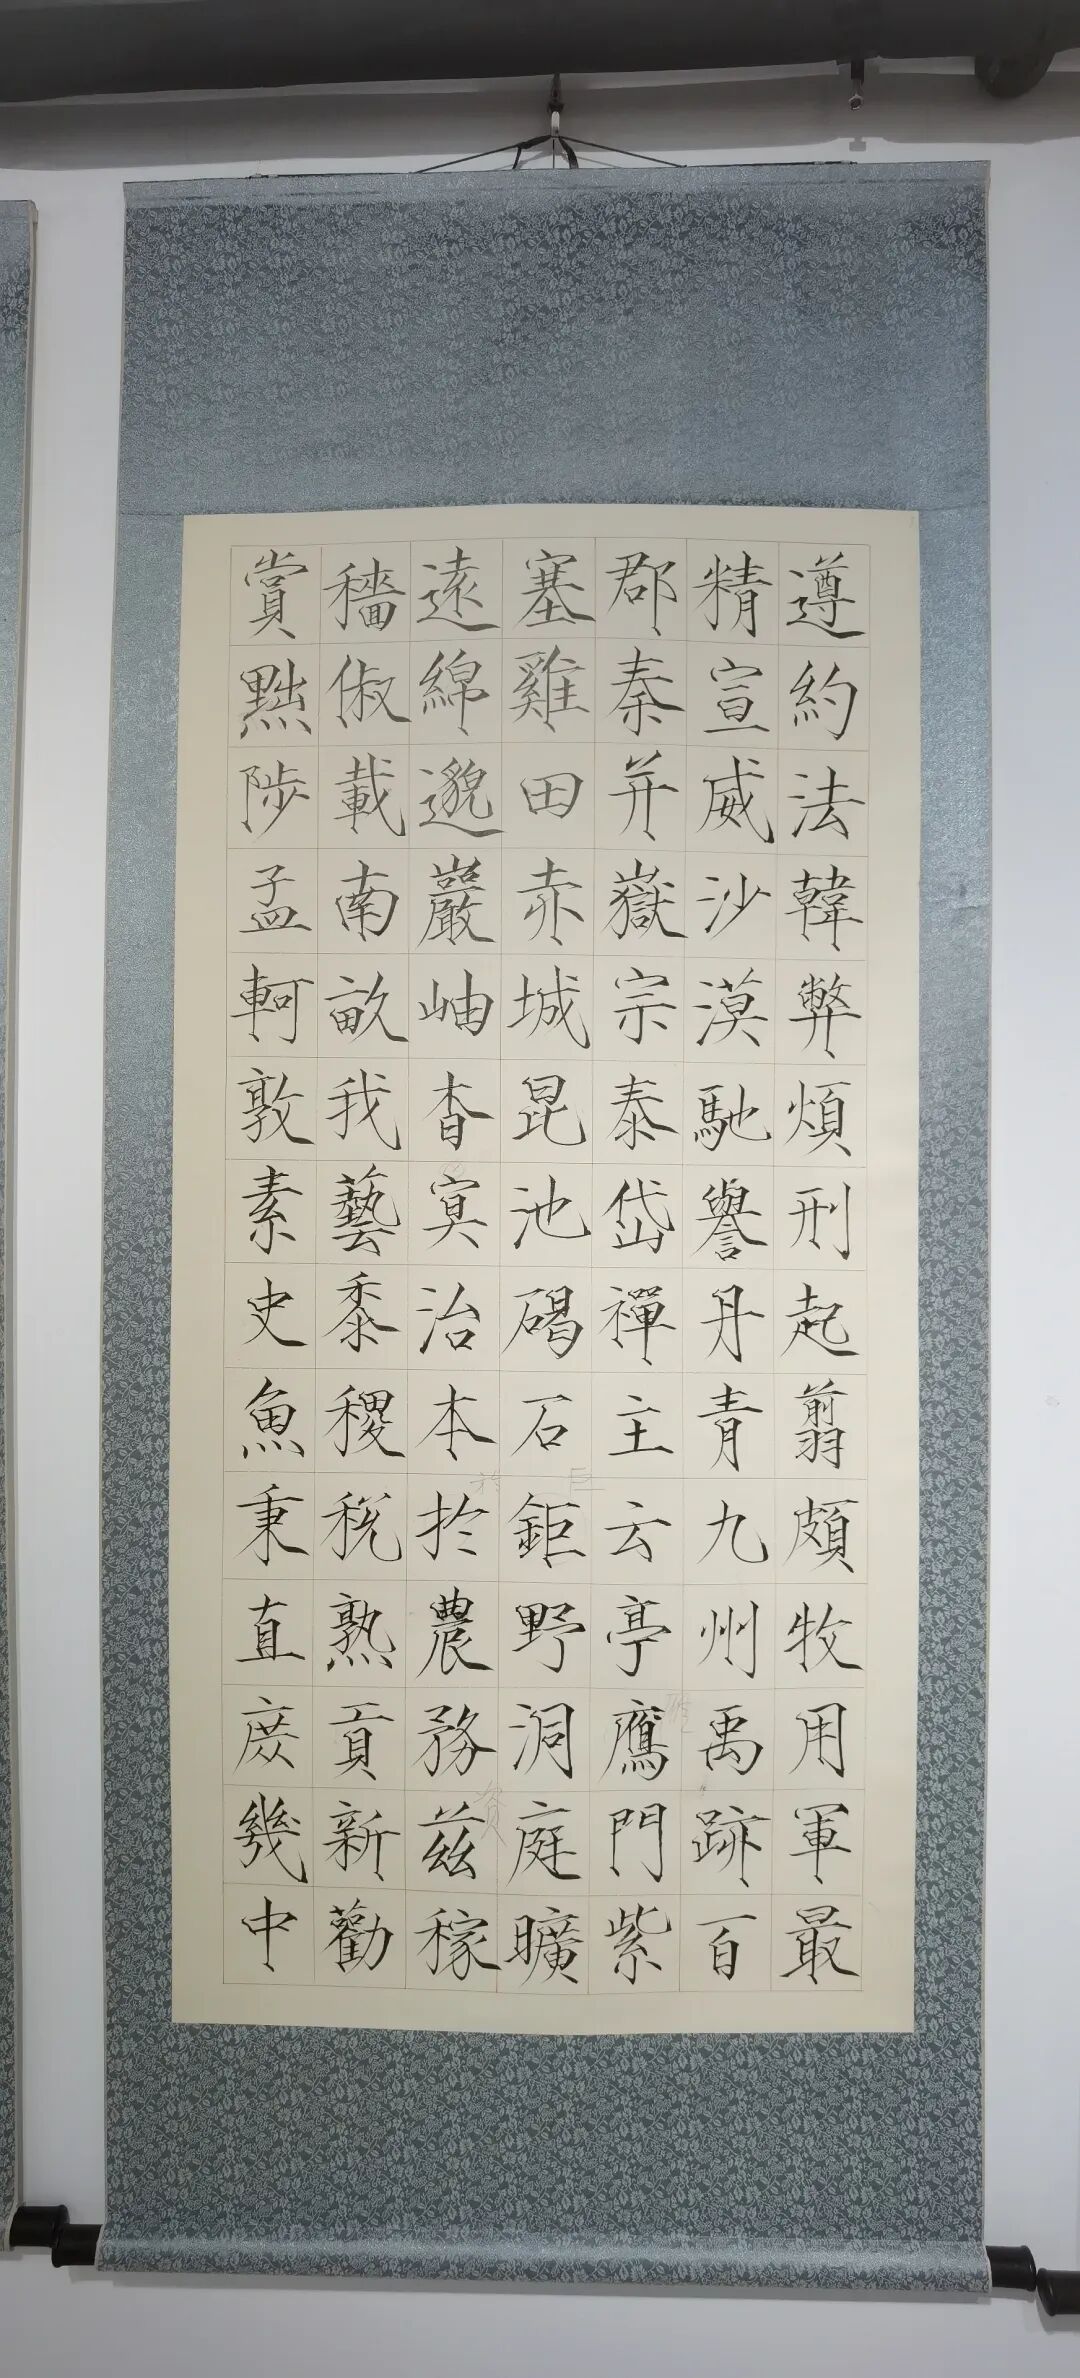 遵約法韓弊煩刑起翦頗牧用軍最
精宣威沙漠馳譽丹青九州禹跡百
郡秦并嶽宗泰岱禪主云亭鷹門紫
塞雞田赤城昆池碣石鉅野洞庭曠
遠綿邈巖岫杳冥治本於農務茲稼
穡俶載南畝我藝黍稷稅熟貢新勸
賞黜陟孟軻敦素史魚秉直庶幾中